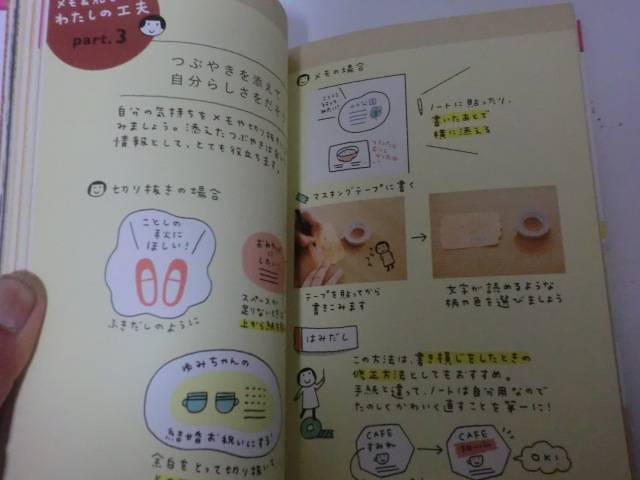 わたしの工夫
part.3
つぶやきを添えて
自分らしさをだそう
自分の気持ちをメモや切り抜き
みましょう。添えたつぶやきは
情報として、とても役立ちます。
切り抜きの場合
ことしの
秋に
ほしい!
ふきだしのように
おみやげ
にしたい
スペースが
足りないとき
上から紙を
ゆみちゃんの
結婚お祝いにする!
余白をとって切り抜いて
メモの場合
ここに
ノートに貼ったり、
書いたあとで
横に添える
マスキングテープに書く
テープを貼ってから
書きこみます
文字が読めるような
柄や色を選びましょう
はみだし
この方法は、書き損じをしたときの
修正方法としてもおすすめ。
手紙と違って、ノートは自分用なので
たのしくかわいく直すことを第一に!
CAFE
すみれ
CAFE
OK!